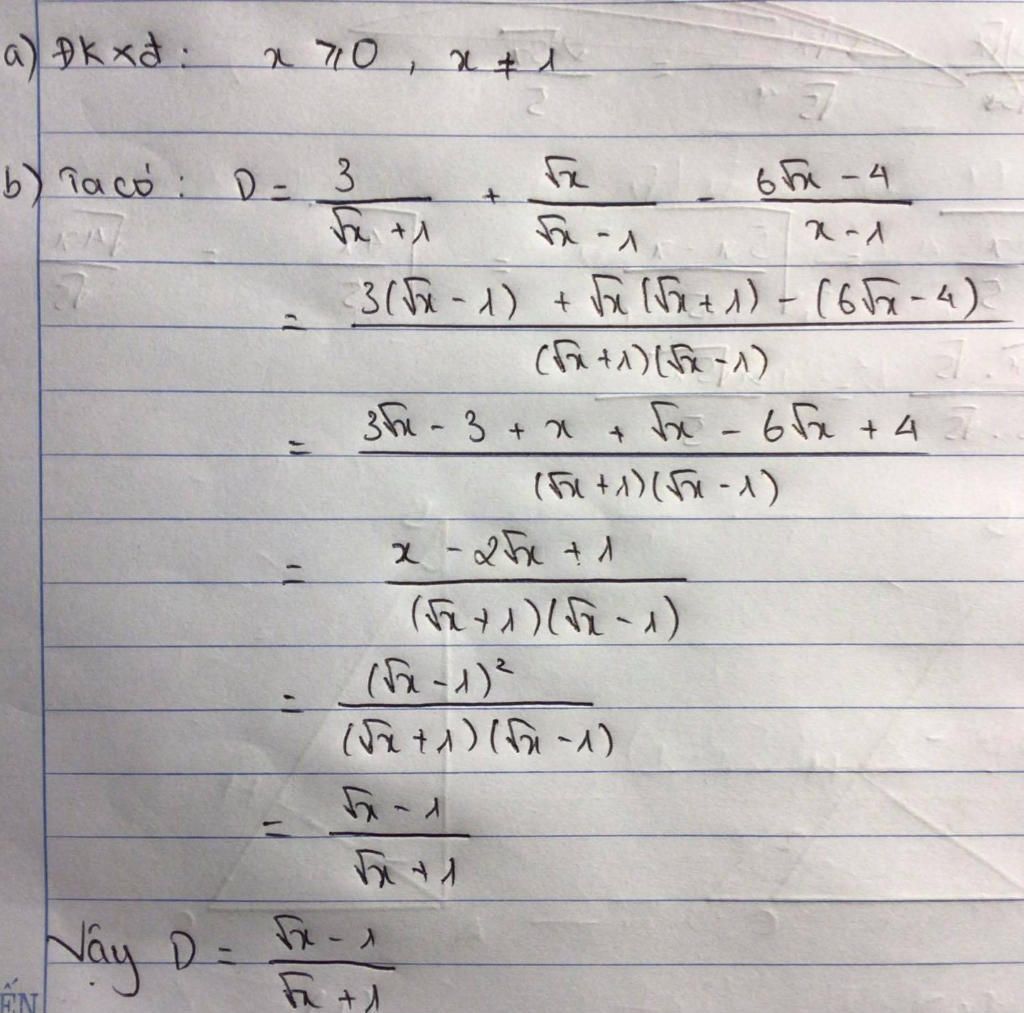 a) ĐKxđ: x ⩾ 0, x ≠ 1
b) Ta có: D = 3/(√x + 1) + √x/(√x - 1) - (6√x - 4)/(x - 1)
= (3(√x - 1) + √x(√x + 1) - (6√x - 4))/((√x + 1)(√x - 1))
= (3√x - 3 + x + √x - 6√x + 4)/((√x + 1)(√x - 1))
= (x - 2√x + 1)/((√x + 1)(√x - 1))
= (√x - 1)²/((√x + 1)(√x - 1))
= (√x - 1)/(√x + 1)
Vậy D = (√x - 1)/(√x + 1)
ẾN